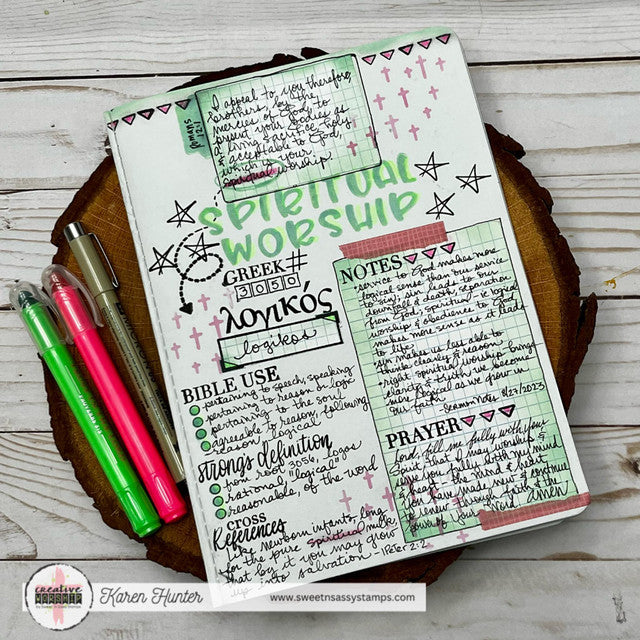 Romans 12:1
I appeal to you therefore,
brothers, by the
mercies of God, to
present your bodies as
a living sacrifice, holy
& acceptable to God,
which is your
spiritual worship.
SPIRITUAL
WORSHIP
GREEK#
3050
λογικός
logikos
BIBLE USE
pertaining to speech, speaking
pertaining to reason or logic
pertaining to the soul
agreeable to reason, following
reason, logical
strongs definition
from root 3056, logos
rational, "logical"
reasonable, of the word
CROSS
References
like newborn infants, long
for the pure spiritual milk,
that by it you may grow
up into salvation 1 Peter 2:2
NOTES
service to God makes more
logical sense than our service
to sin; sin leads to our
downfall & death, separation
from God, spiritual & logical
worship & obedience to God
makes more sense as it leads
to life.
sin makes us less able to
think clearly & reason
right spiritual worship brings
clarity & truth we become
more logical as we grow in
our faith.
sermon notes 8/27/2023
PRAYER
Lord, fill me fully with your
Spirit, that I may worship &
serve you fully with my mind
& heart, the mind & heart
you have made new & continue
to renew through faith & the
power of Your Word. amen
creative
WORSHIP
by Sweet 'n Sassy Stamps
Karen Hunter
www.sweetnsassystamps.com